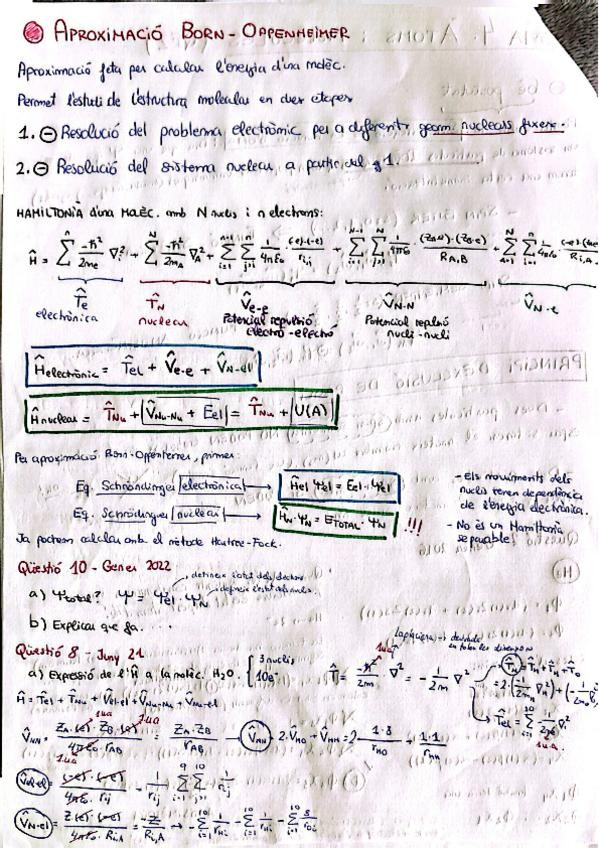 APROXIMACIÓ BORN-OPPENHEIMER
Aproximació feta per calcular l'energia d'una molèc.
Permet l'estudi de l'estructura molecular en dues etapes
1. ⊖ Resolució del problema electrònic per a diferents geom. nuclears fixes.
2. ⊖ Resolució del sistema nuclear a partir del 1.
HAMILTONIÀ d'una MOLÈC. amb N nuclis i n electrons:
Ĥ = Σ -ħ²/2me ∇i² + Σ -ħ²/2mA ∇A² + Σ Σ 1/4πε0 (-e)·(-e)/ri,j + Σ Σ 1/4πε0 (ZA·e)·(ZB·e)/RA,B + Σ Σ
T̂e T̂N V̂e-e V̂N-N V̂N-e
electrònica nuclear Potencial repulsió electró-electró Potencial repulsió nucli-nucli
Ĥelectrònic = T̂el + V̂e-e + V̂N-el
Ĥnuclear = T̂Nu + V̂Nu-Nu + Eel = T̂Nu + U(A)
Per aproximació Born-Oppenheimer, primer:
Eq. Schrödinger electrònica → Ĥel Ψel = Eel·Ψel
Eq. Schrödinger nuclear → ĤN·ΨN = ETOTAL·ΨN !!!
- Els moviments dels nuclis tenen dependència de l'energia electrònica.
- No és un Hamiltonià separable.
Ja podem calcular amb el mètode Hartree-Fock.
Qüestió 10 - Gener 2022
a) Ψtotal? Ψ = Ψel · ΨN
b) Explicar que fa. . . .
Qüestió 8 - Juny 21
a) Expressió de l'Ĥ a la molèc. H₂O. { 3 nuclis 10e⁻
T̂ = -ħ²/2m ∇² = -1/2m ∇²
Ĥ = T̂el + T̂Nu + V̂el-el + V̂Nu-Nu + V̂Nu-el
V̂NN = ZA·(e)·ZB·(e)/4πε0·rAB = ZA·ZB/rAB → V̂NN = 2·V̂HO + V̂HH = 2 1·8/rHO + 1·1/rHH
V̂el-el = (-e)·(-e)/4πε0·rij = 1/rij Σ Σ 1/rij
V̂N-el = Z(e)·(-e)/4πε0·Ri,A = -Z/Ri,A → -Σ 1/rHi - Σ 1/rHi - Σ 8/rOi